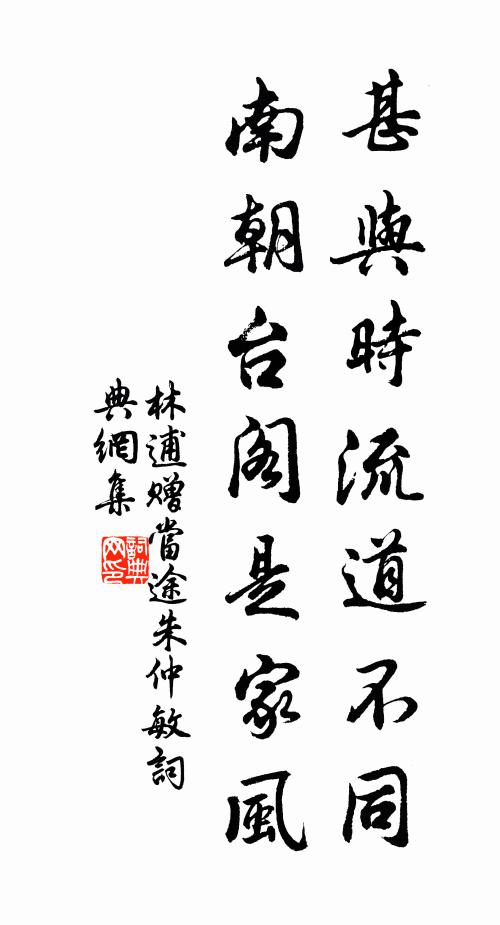 甚與時流道不同
南朝台阁是家風
林逋赠當途朱仲敏詞
典網集
詞典網印